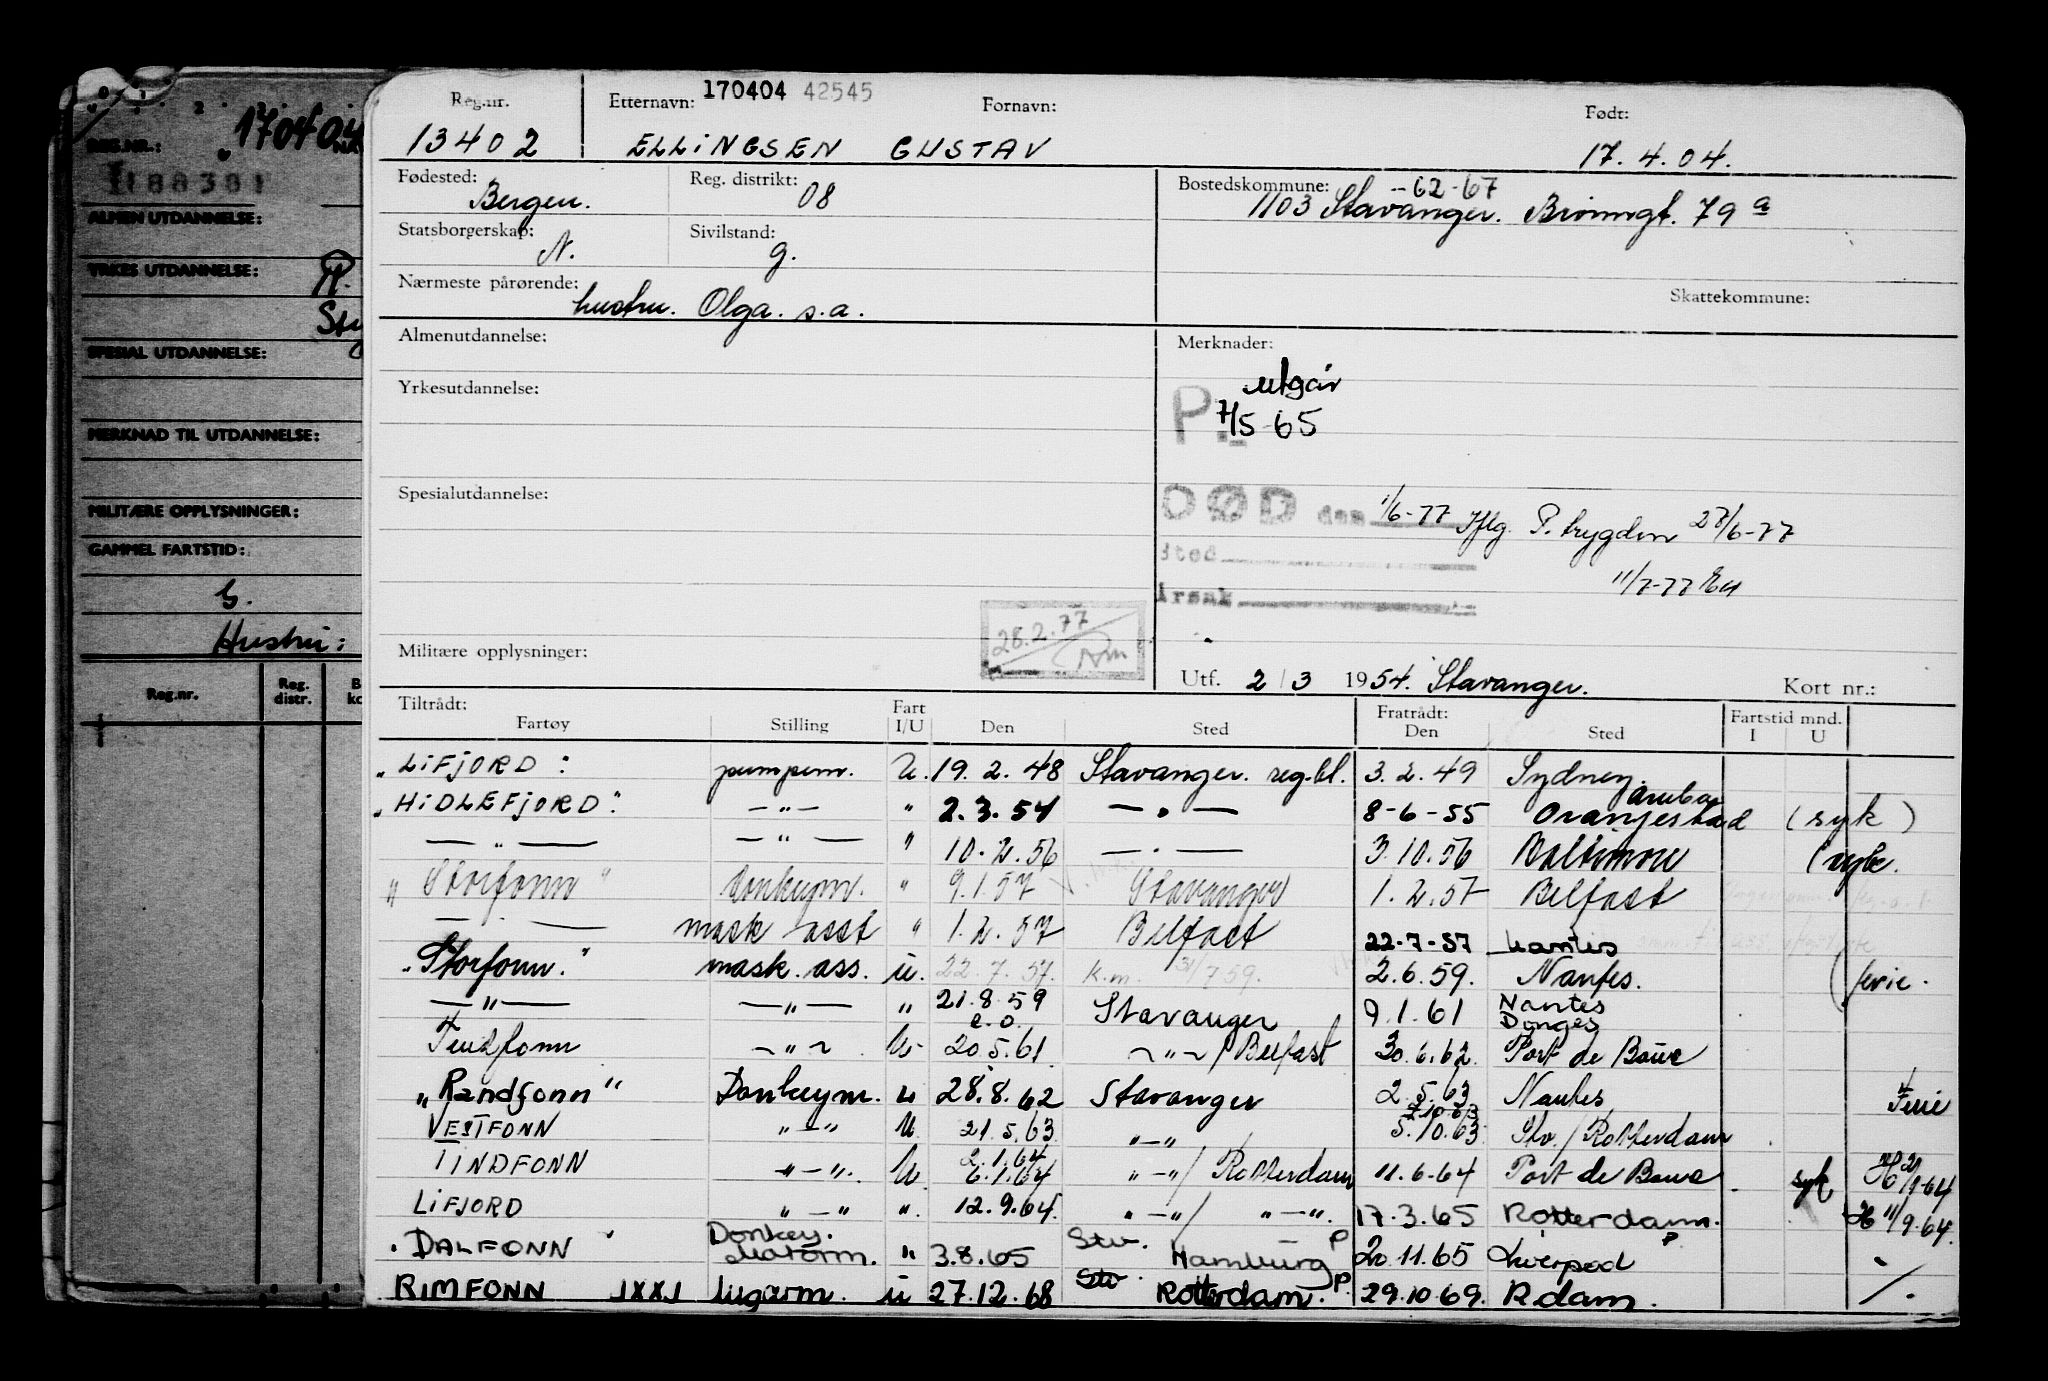 170404
REG.NR.:
1188381
ALMEN UTDANNELSE:
YRKES UTDANNELSE:
SPESIAL UTDANNELSE:
MERKNAD TIL UTDANNELSE:
MILITÆRE OPPLYSNINGER:
GAMMEL FARTSTID:
Hustru:
Reg.nr. Reg. distr.
Reg.nr. Etternavn: 170404 42545 Fornavn: Født:
13402 ELLINGSEN GUSTAV 17.4.04.
Fødested: Bergen. Reg. distrikt: 08 Bostedskommune: -62-67
1103 Stavanger. 79 a
Statsborgerskap: N. Sivilstand: g.
Nærmeste pårørende: hustru. Olga. s.a. Skattekommune:
Almenutdannelse: Merknader:
utgår
Yrkesutdannelse: P. 7/5-65
Spesialutdannelse: DØD den 1/6-77 Iflg. P. trygden 27/6-77
Sted
11/7-77
Årsak
28.2.77
Militære opplysninger: Utf. 2/3 1954. Stavanger. Kort nr.:
Tiltrådt: Fartøy Stilling Fart I/U Den Sted Fratrådt: Den Sted Fartstid mnd. I U
"LIFJORD: pumpem. U. 19.2.48 Stavanger. reg.bl. 3.2.49 Sydney.
"HIDLEFJORD" —"— " 2.3.54 —"— 8-6-55 Aruba Oranjestad (syk)
—"— —"— " 10.2.56 —"— 3.10.56 Baltimore
"Storfonn" donkeym. " 9.1.57 Stavanger 1.2.57 Belfast
—"— mask asst " 1.2.57 Belfast 22-7-57 Nantes
"Storfonn." mask. ass. u. 22.7.57. k.m. 31/7 59. 2.6.59. Nantes. (ferie.
—"— —"— " 21.8.59 Stavanger 9.1.61 Nantes Donges
e.o.
Tindfonn —"— U. 20.5.61. —"—/Belfast 30.6.62. Port de Bouc
"Randfonn" Donkeym. u 28.8.62 Stavanger 2.5.63 Nantes Ferie
VESTFONN "—" U. 21.5.63 "—" 7.10.63 5.10.63. Stv./Rotterdam
TINDFONN "—". U. 2.1.64 6.1.64 "—"/Rotterdam 11.6-64 Port de Bouc syk
LIFJORD "—" ". 12.9.64. "—"/ "—". 17.3.65 Rotterdam. 11/9.64.
DALFONN Donkey. Motorm. " 3.8.65 Stv. Hamburg P 20.11.65 Liverpool P
RIMFONN JXXJ lugarm. u 27.12.68 Stv Rotterdam. P 29.10.69. Rdam.